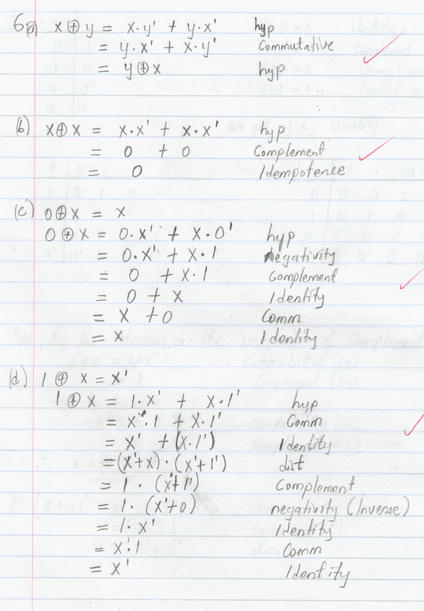 6(a) x⊕y = x·y' + y·x' hyp
= y·x' + x·y' Commutative
= y⊕x hyp
(b) x⊕x = x·x' + x·x' hyp
= 0 + 0 Complement
= 0 Idempotence
(c) 0⊕x = x
0⊕x = 0·x' + x·0' hyp
= 0·x' + x·1 negativity
= 0 + x·1 Complement
= 0 + x Identity
= x + 0 Comm
= x Identity
(d) 1⊕x = x'
1⊕x = 1·x' + x·1' hyp
= x'·1 + x·1' Comm
= x' + (x·1') Identity
= (x'+x)·(x'+1') dist
= 1·(x'+1') Complement
= 1·(x'+0) negativity (Inverse)
= 1·x' Identity
= x'·1 Comm
= x' Identity